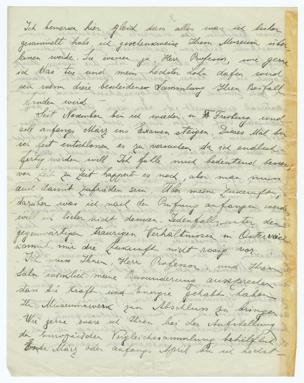 Ich bemerke hier gleich dass alles was ich bisher
gesammelt habe ich geschenkweise Ihrem Museum
werde. Sie wissen ja, Herr Professor, wie gerne
ich das tue und mein Lohn dafür wird
sein wenn diese bescheidene Sammlung Ihren Beifall
finden wird.
Seit November bin ich wieder in Freiburg und
will anfangs März ins Examen steigen. Dieses Mal bin
ich fest entschlossen es zu versuchen, da ich endlich
fertig werden will. Ich fühle mich bedeutend besser
von Zeit zu Zeit happert es noch, aber man muss
auch damit zufrieden sein. Was meine Zukunft
darüber was ich nach der Prüfung anfangen werde
will ich lieber nicht denken. Jedenfalls unter den
gegenwärtigen traurigen Verhältnissen in Österreich
kommt mir die Zukunft nicht rosig vor.
Ich muss Ihnen, Herr Professor, und Ihrem
meine Bewunderung aussprechen
dass Sie Kraft und Energie gehabt haben
Ihr Museumswerk zum Abschluss zu bringen
Wie gerne wäre ich Ihnen bei der Aufstellung
der Europäischen Vergleichssammlung behilflich
Ende März oder anfangs April bin ich